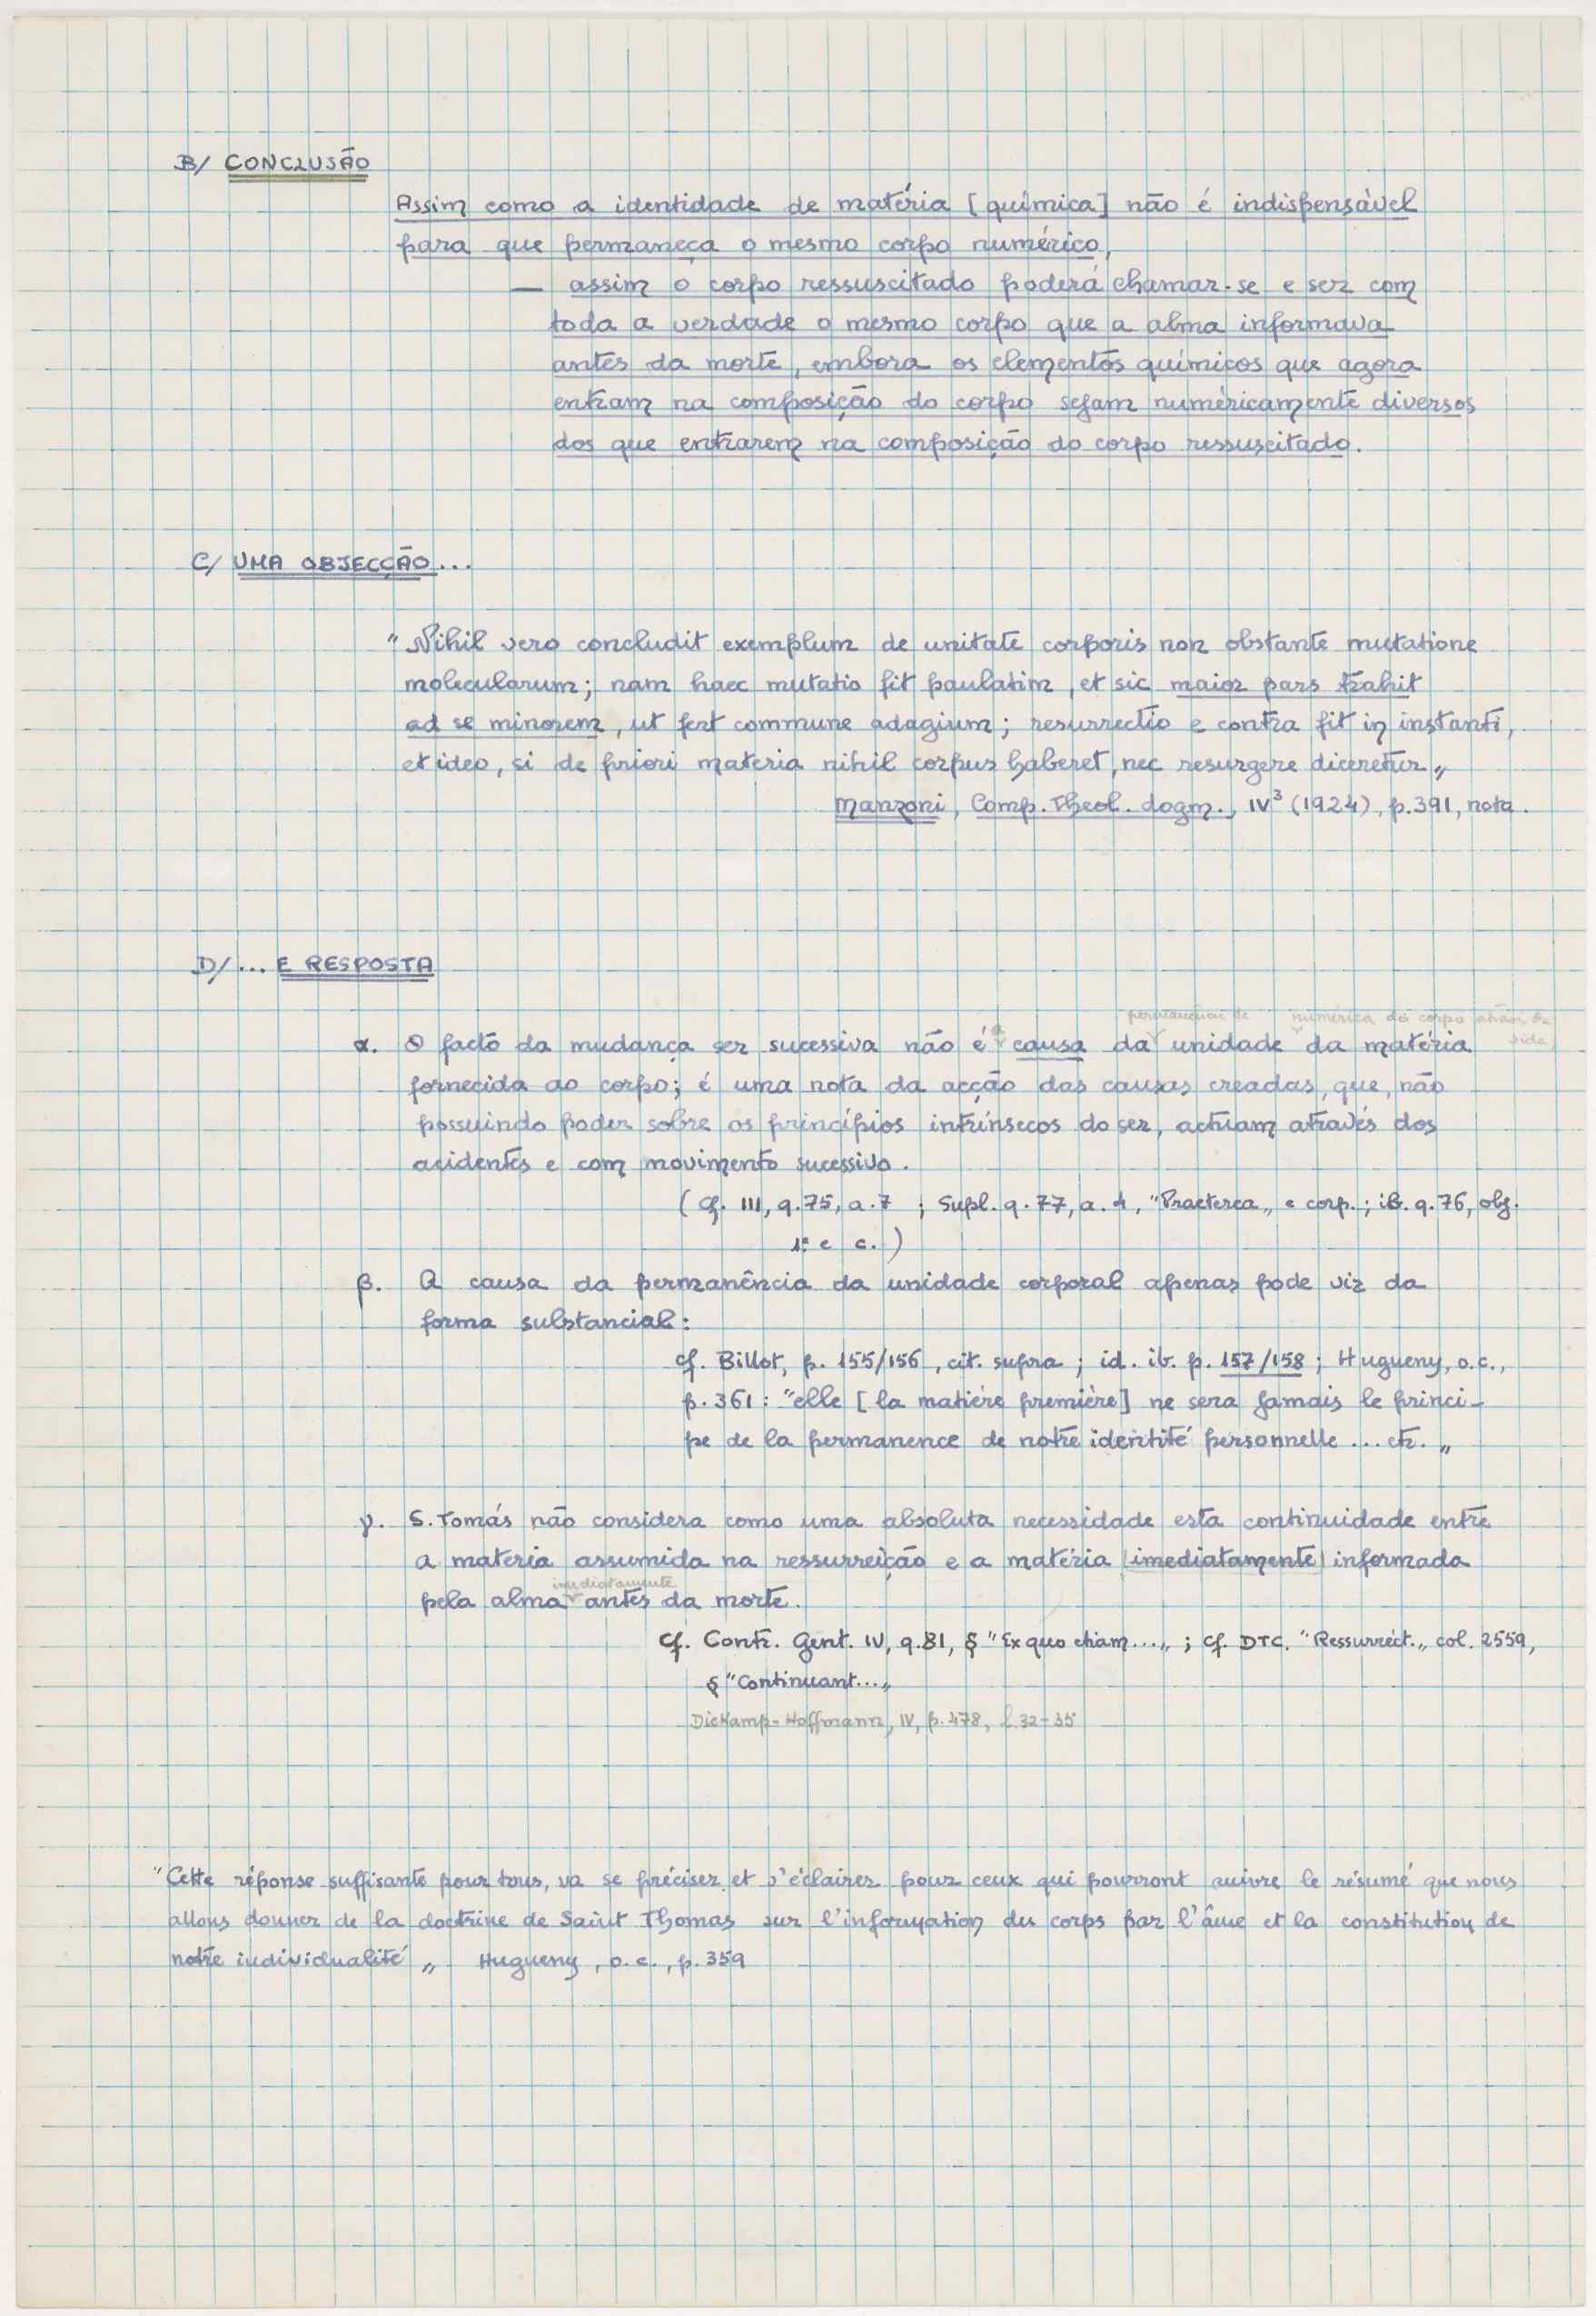 B/ CONCLUSÃO
Assim como a identidade de matéria [química] não é indispensável
para que permaneça o mesmo corpo numérico,
— assim o corpo ressuscitado poderá chamar-se e ser com
toda a verdade o mesmo corpo que a alma informava
antes da morte, embora os elementos químicos que agora
entram na composição do corpo sejam numéricamente diversos
dos que entrarem na composição do corpo ressuscitado.
C/ UMA OBJECÇÃO...
"Nihil vero concludit exemplum de unitate corporis non obstante mutatione
molecularum; nam haec mutatio fit paulatim, et sic maior pars trahit
ad se minorem, ut fert commune adagium; resurrectio e contra fit in instanti,
et ideo, si de priori materia nihil corpus haberet, nec resurgere diceretur„
Manzoni, Comp. Theol. dogm., IV³ (1924), p.391, nota.
D/ ... E RESPOSTA
permanência de numérica do corpo através da
vida
α. O facto da mudança ser sucessiva não é a causa da unidade da matéria
fornecida ao corpo; é uma nota da acção das causas creadas, que, não
possuindo poder sobre os princípios intrínsecos do ser, actuam através dos
acidentes e com movimento sucessivo.
(Cf. III, q.75, a.7 ; Supl. q.77, a.4, "Praeterea„ e corp.; ib. q.76, obj.
1ª e c.)
β. A causa da permanência da unidade corporal apenas pode vir da
forma substancial:
cf. Billot, p. 155/156, cit. supra ; id. ib. p. 157/158 ; Hugueny, o.c.,
p.361 : "elle [la matière première] ne sera jamais le princi-
pe de la permanence de notre identité personnelle ... etc. „
γ. S. Tomás não considera como uma absoluta necessidade esta continuidade entre
a materia assumida na ressurreição e a matéria imediatamente informada
imediatamente
pela alma antes da morte.
Cf. Contr. Gent. IV, q.81, § "Ex quo etiam...„ ; Cf. DTC. "Ressurrect.„ col. 2559,
§ "Continuant...„
Diekamp-Hoffmann, IV, p.478, l.32-35
"Cette réponse suffisante pour tous, va se préciser et s'éclairer pour ceux qui pourront suivre le résumé que nous
allons donner de la doctrine de Saint Thomas sur l'information du corps par l'âme et la constitution de
notre individualité „ Hugueny, o.c., p.359